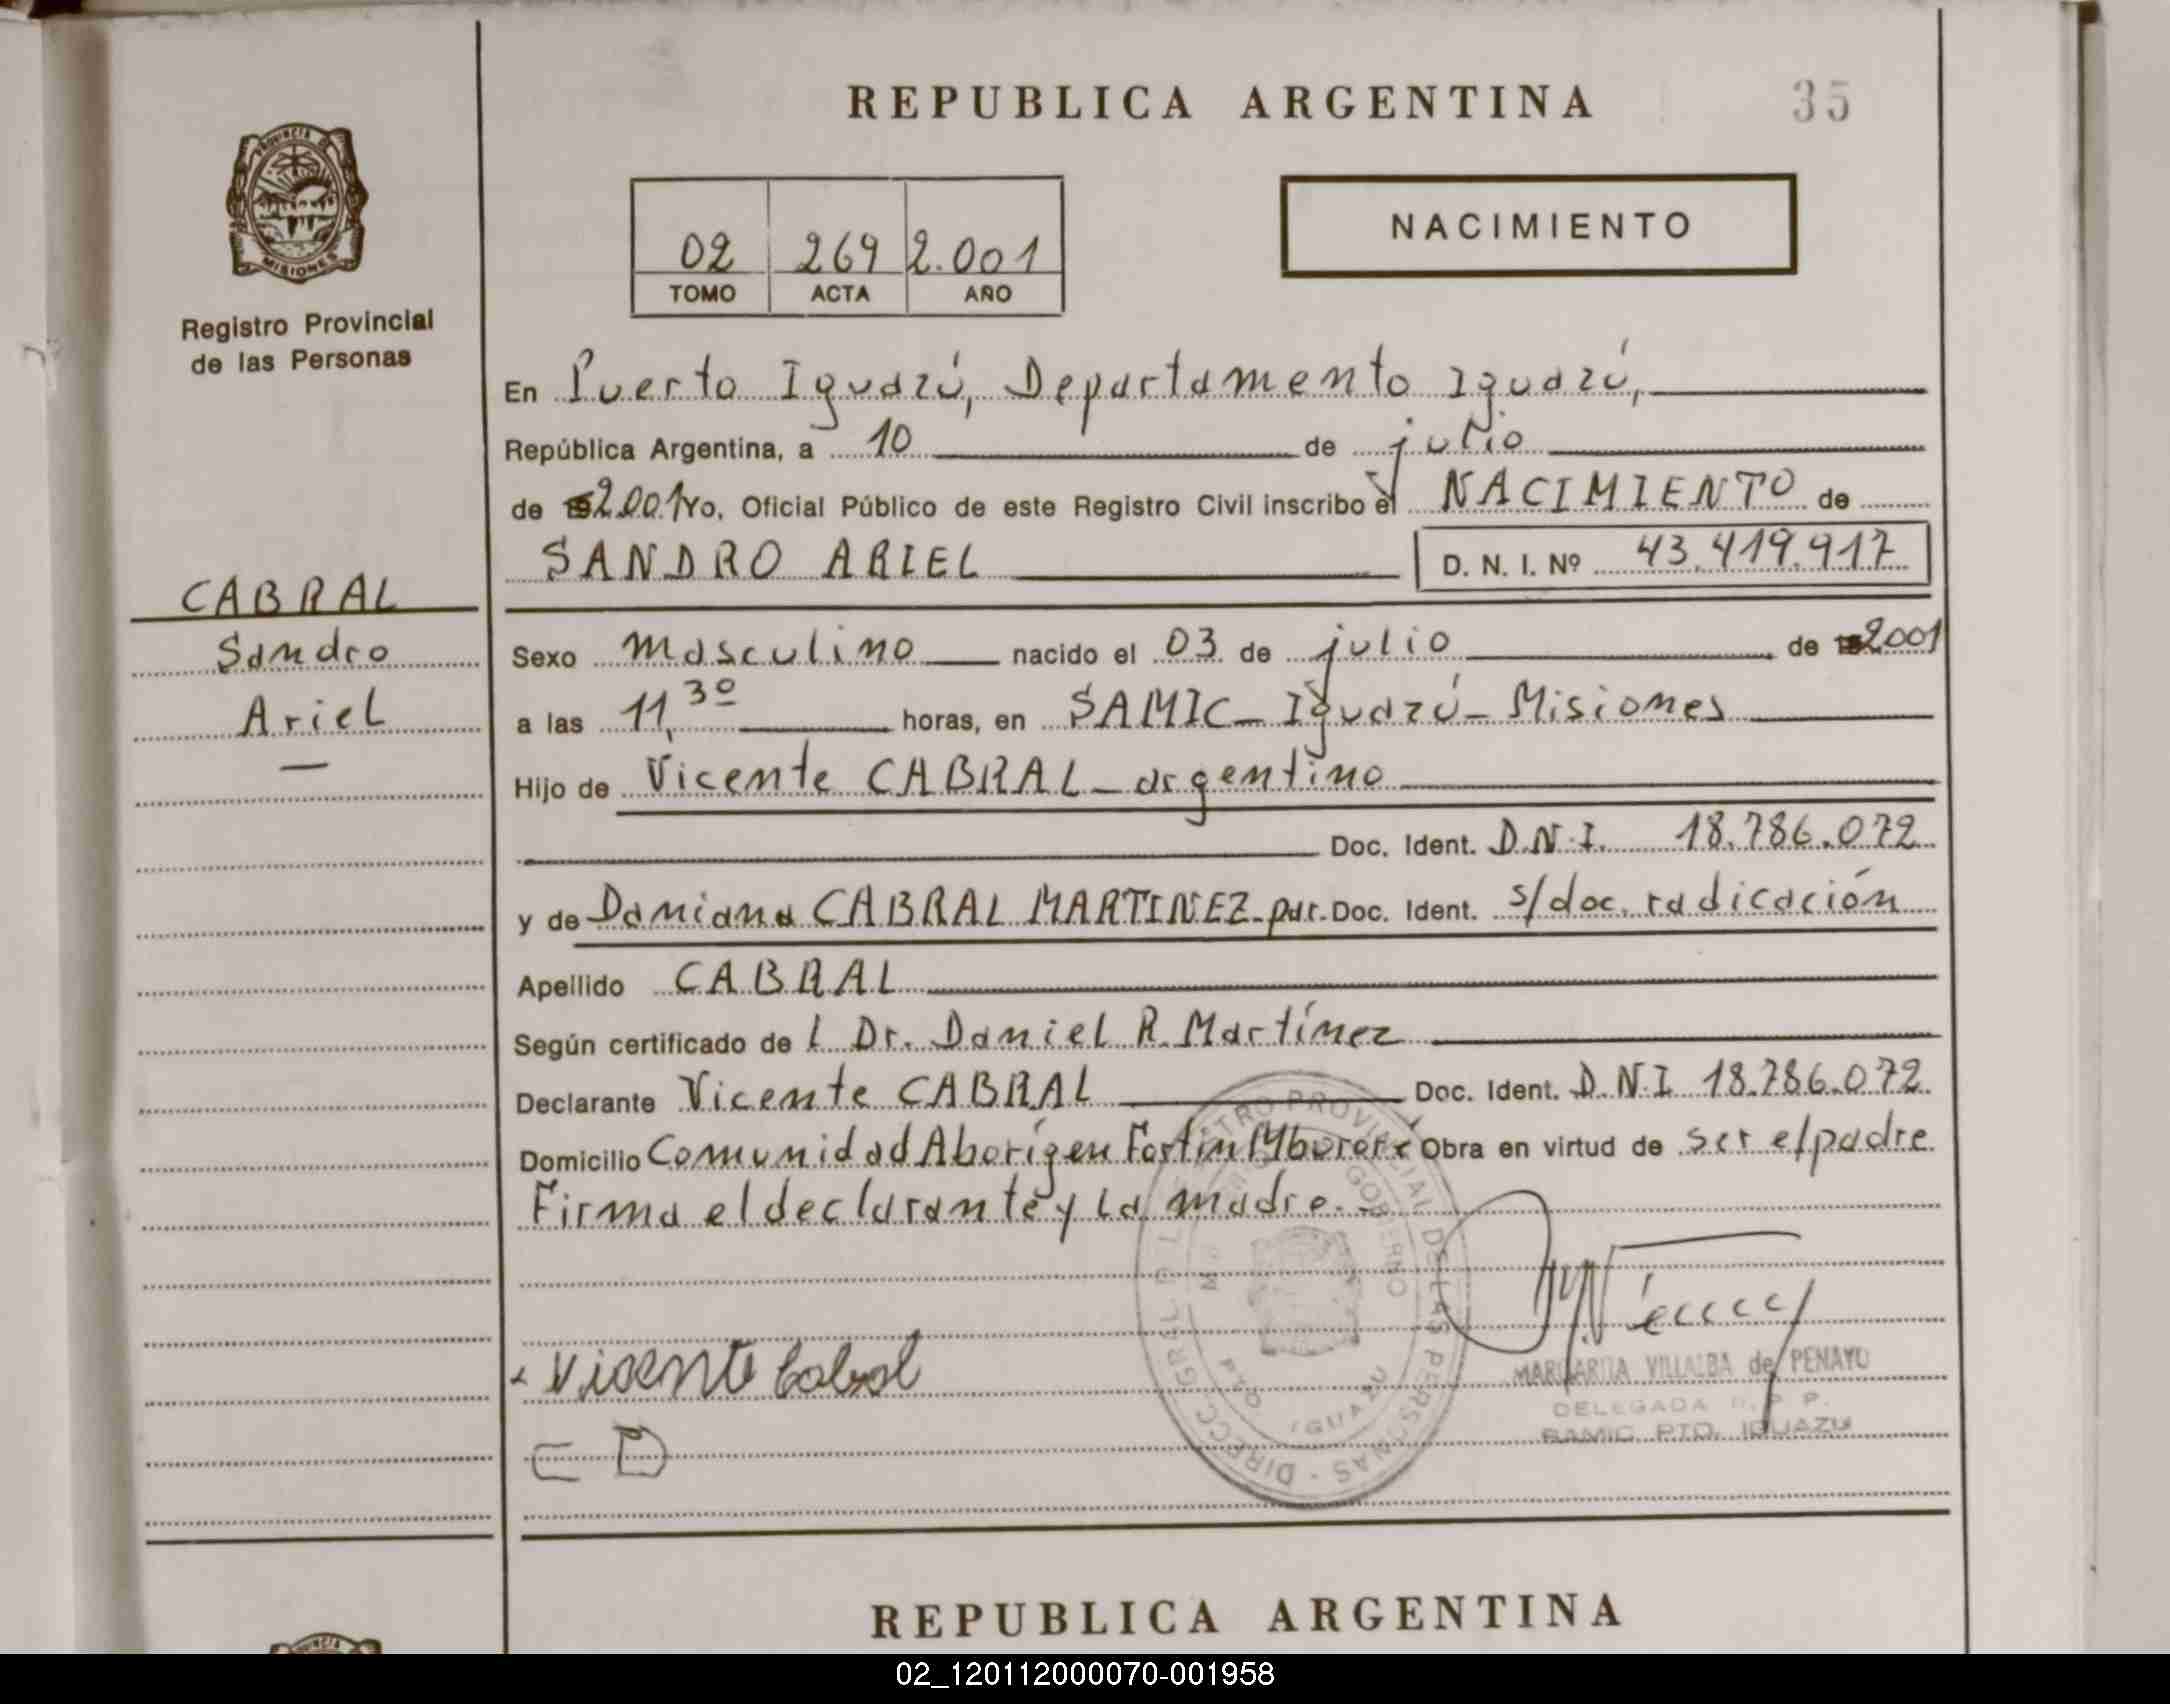 REPUBLICA ARGENTINA
35
PROVINCIA DE
MISIONES
Registro Provincial
de las Personas
02 269 2.001
TOMO ACTA AÑO
NACIMIENTO
En Puerto Iguazú, Departamento Iguazú,
República Argentina, a 10 de julio
de 2001 Yo, Oficial Público de este Registro Civil inscribo el NACIMIENTO de
SANDRO ARIEL D. N. I. Nº 43.419.917
CABRAL
Sandro
Ariel
Sexo masculino nacido el 03 de julio de 2001
a las 11,30 horas, en SAMIC - Iguazú - Misiones
Hijo de Vicente CABRAL - argentino
Doc. Ident. D.N.I. 18.786.072
y de Damiana CABRAL MARTINEZ - par. Doc. Ident. s/doc. radicación
Apellido CABRAL
Según certificado de l Dr. Daniel R. Martínez
Declarante Vicente CABRAL Doc. Ident. D.N.I 18.786.072
Domicilio Comunidad Aborígen Fortin Mbororé Obra en virtud de ser el padre
Firma el declarante y la madre.-
Vicente Cabral
C D
DIRECC. GRAL. DEL REGISTRO PROVINCIAL DE LAS PERSONAS
GOBIERNO
PTO. IGUAZU
MARGARITA VILLALBA de PENAYO
DELEGADA R. P. P.
SAMIC PTO. IGUAZU
REPUBLICA ARGENTINA
02_120112000070-001958